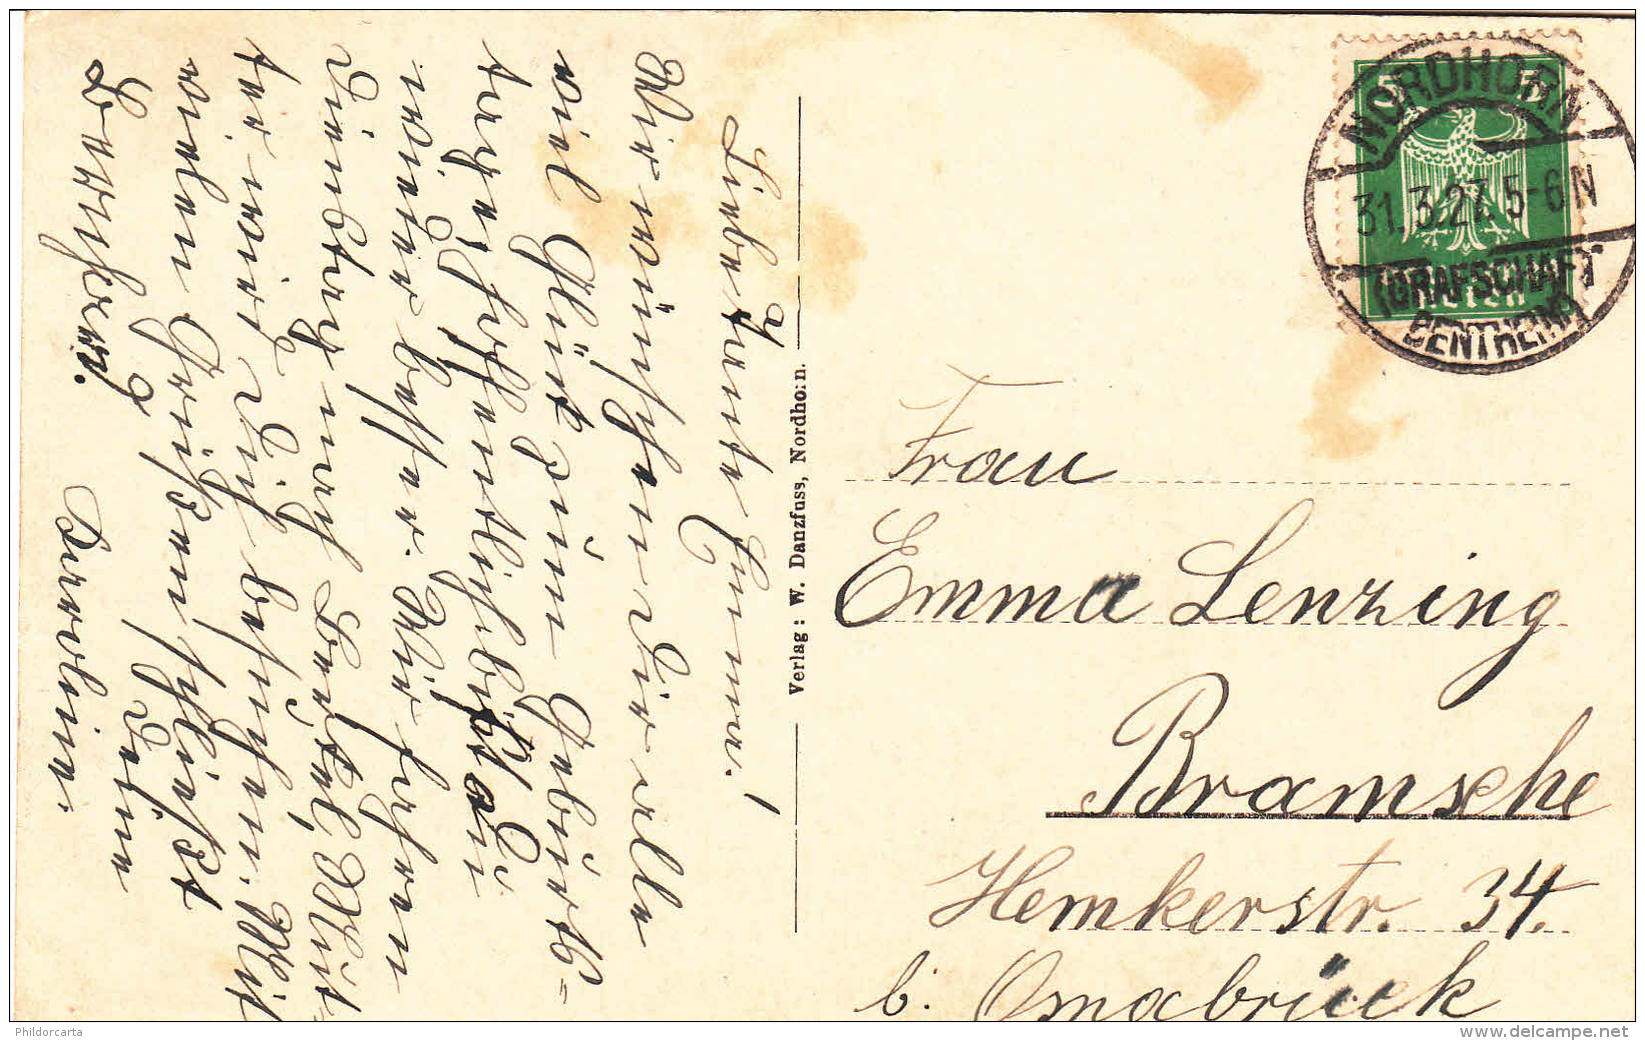 Liebe Tante Emma!
Wir wünschen Dir alle
viel Glück zum Geburts=
tage, hoffentlich bist Du
wieder besser. Wir fahren
Dienstag nach Mut-
ter wird Dich besuchen. Mit
vielen Grüßen schließt
Deine
Karoline.
Verlag: W. Danzfuss, Nordhorn.
5 5
NORDHORN
31.3.27. 5-6 N
(GRAFSCHAFT
BENTHEIM)
Frau
Emma Lenzing
Bramsche
Hemkerstr. 34.
b. Osnabrück
Phildorcarta
www.delcampe.net